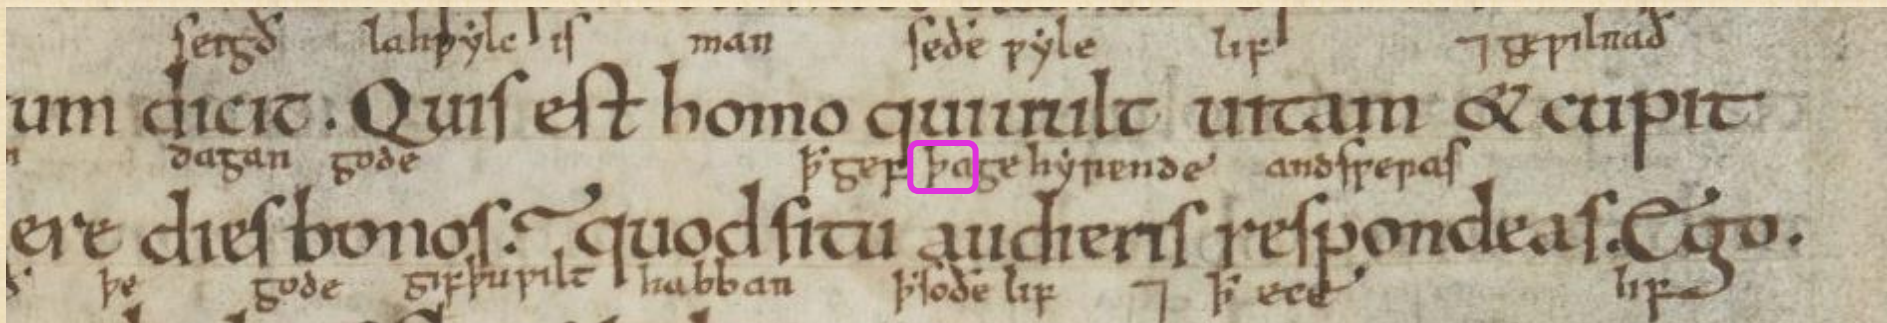 segð lahƿylc is man seðe ƿyle lif ⁊ geƿilnað
um dicit. Quis est homo qui uult uitam & cupit
dagan gode ꝥ gef þa gehyrende andsƿeras
ere dies bonos. quod si tu audieris respondeas. Ego.
þe gode gif þu ƿilt habban ꝥ soðe lif ⁊ ꝥ ece lif